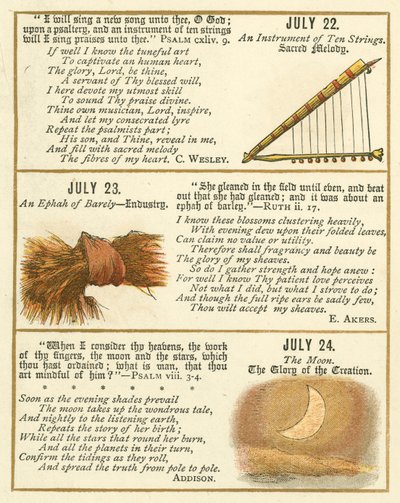 "I will sing a new song unto thee, O God;
upon a psaltery, and an instrument of ten strings
will I sing praises unto thee." PSALM cxliv. 9.
If well I know the tuneful art
To captivate an human heart,
The glory, Lord, be thine,
A servant of Thy blessed will,
I here devote my utmost skill
To sound Thy praise divine.
Thine own musician, Lord, inspire,
And let my consecrated lyre
Repeat the psalmists part;
His son, and Thine, reveal in me,
And fill with sacred melody
The fibres of my heart. C. WESLEY.
JULY 22.
An Instrument of Ten Strings.
Sacred Melody.
JULY 23.
An Ephah of Barely—Industry.
"She gleaned in the field until even, and beat
out that she had gleaned; and it was about an
ephah of barley."—RUTH ii. 17.
I know these blossoms clustering heavily,
With evening dew upon their folded leaves,
Can claim no value or utility.
Therefore shall fragrancy and beauty be
The glory of my sheaves.
So do I gather strength and hope anew:
For well I know Thy patient love perceives
Not what I did, but what I strove to do;
And though the full ripe ears be sadly few,
Thou wilt accept my sheaves.
E. AKERS.
"When I consider thy heavens, the work
of thy fingers, the moon and the stars, which
thou hast ordained; what is man, that thou
art mindful of him?"—PSALM viii. 3-4.
* * * * * *
Soon as the evening shades prevail
The moon takes up the wondrous tale,
And nightly to the listening earth,
Repeats the story of her birth;
While all the stars that round her burn,
And all the planets in their turn,
Confirm the tidings as they roll,
And spread the truth from pole to pole.
ADDISON.
JULY 24.
The Moon.
The Glory of the Creation.